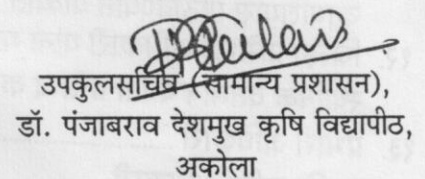 उपकुलसचिव (सामान्य प्रशासन),
डॉ. पंजाबराव देशमुख कृषि विद्यापीठ,
अकोला